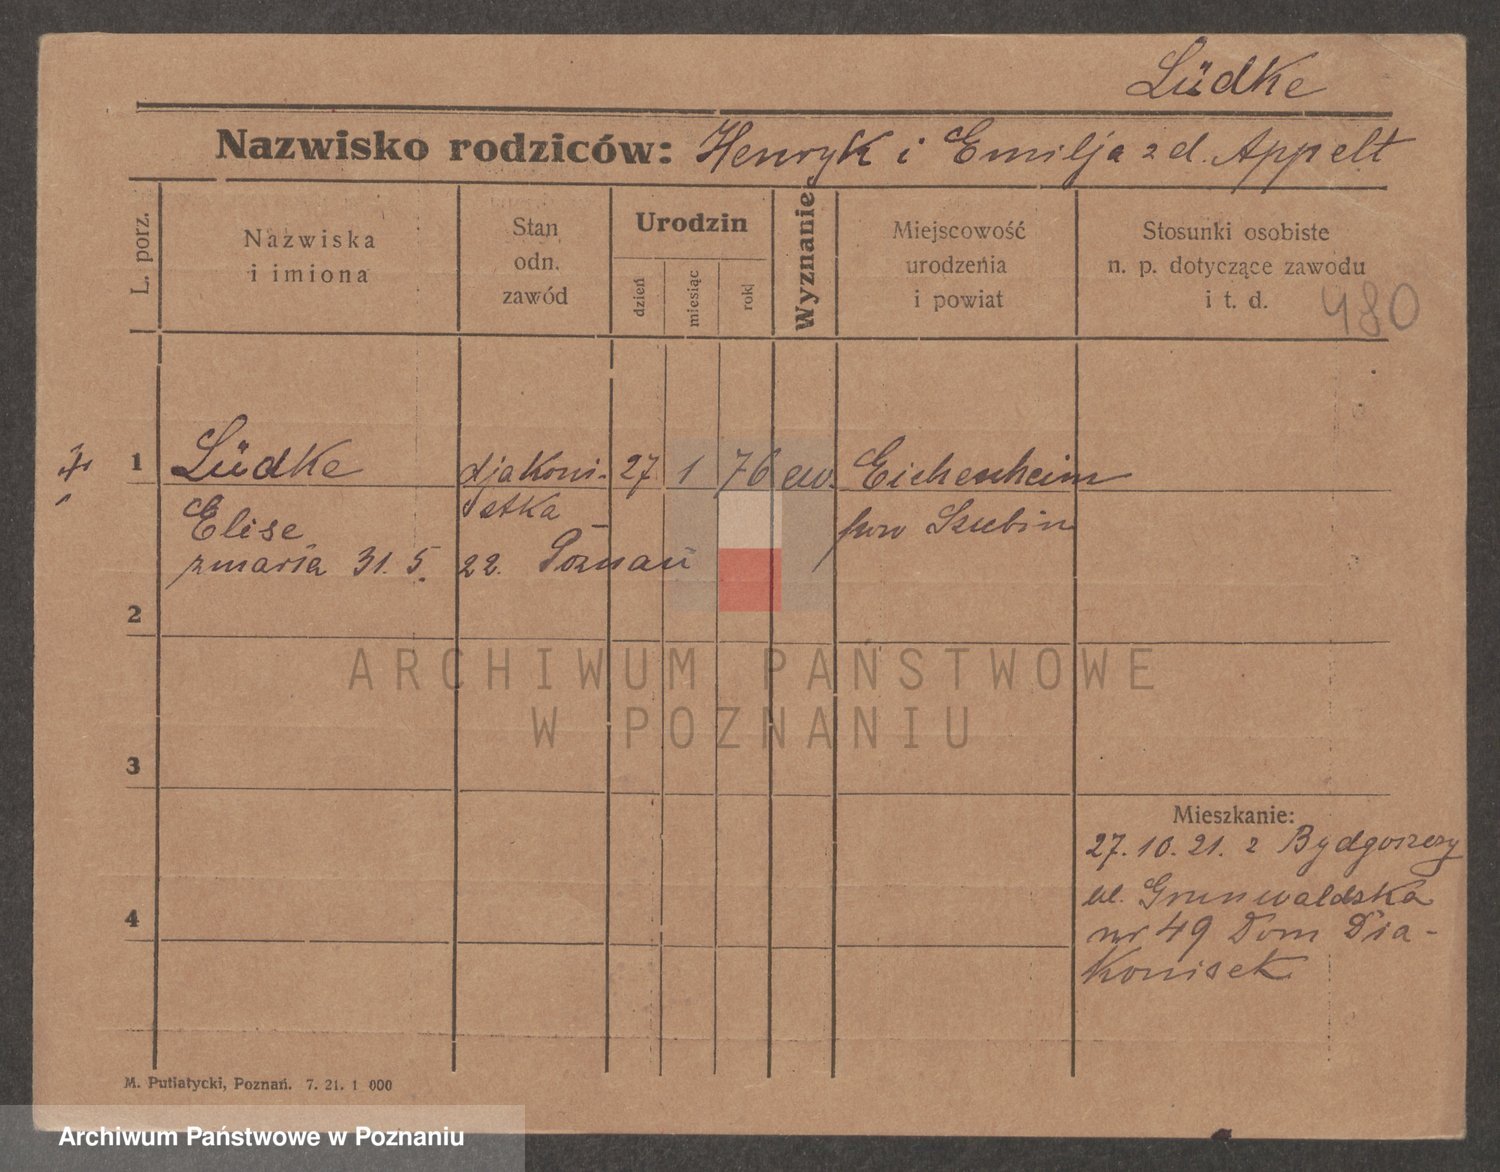 Lüdke
Nazwisko rodziców: Henryk i Emilja z d. Appelt
L. porz.
Nazwiska
i imiona
Stan
odn.
zawód
Urodzin
dzień
miesiąc
rok
Wyznanie
Miejscowość
urodzenia
i powiat
Stosunki osobiste
n. p. dotyczące zawodu
i t. d.
480
1 Lüdke djakoni- 27 1 76 ew. Eichenheim
Elise setka pow Szubin
zmarła 31. 5. 22. Poznań
2
ARCHIWUM PAŃSTWOWE
W POZNANIU
3
Mieszkanie:
27. 10. 21. z Bydgoszczy
ul. Grunwaldska
nr 49 Dom Dia-
konisek
4
M. Putiatycki, Poznań. 7. 21. 1 000
Archiwum Państwowe w Poznaniu